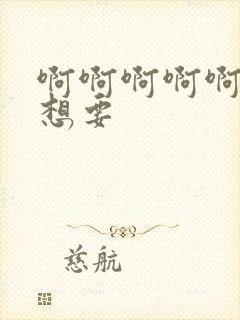 啊啊啊啊啊
想要
慈航